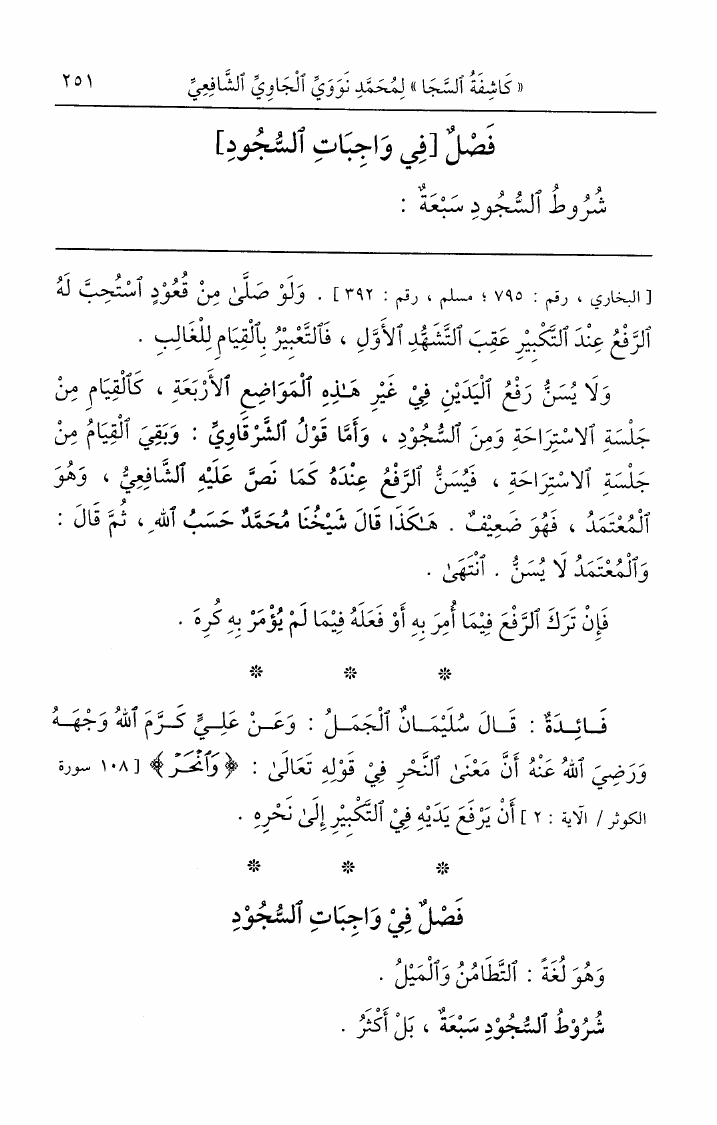 « كَاشِفَةُ ٱلسَّجَا » لِمُحَمَّدِ نَوَوِيِّ ٱلْجَاوِيِّ ٱلشَّافِعِيِّ ٢٥١
فَصْلٌ [فِي وَاجِبَاتِ ٱلسُّجُودِ]
شُرُوطُ ٱلسُّجُودِ سَبْعَةٌ :
[ البخاري ، رقم : ٧٩٥ ؛ مسلم ، رقم : ٣٩٢ ] . وَلَوْ صَلَّىٰ مِنْ قُعُودٍ ٱسْتُحِبَّ لَهُ
ٱلرَّفْعُ عِنْدَ ٱلتَّكْبِيْرِ عَقِبَ ٱلتَّشَهُّدِ ٱلأَوَّلِ ، فَٱلتَّعْبِيْرُ بِٱلْقِيَامِ لِلْغَالِبِ .
وَلَا يُسَنُّ رَفْعُ ٱلْيَدَيْنِ فِيْ غَيْرِ هَـٰذِهِ ٱلْمَوَاضِعِ ٱلأَرْبَعَةِ ، كَٱلْقِيَامِ مِنْ
جَلْسَةِ ٱلاسْتِرَاحَةِ وَمِنَ ٱلسُّجُوْدِ ، وَأَمَّا قَوْلُ ٱلشَّرْقَاوِيِّ : وَبَقِيَ ٱلْقِيَامُ مِنْ
جَلْسَةِ ٱلاسْتِرَاحَةِ ، فَيُسَنُّ ٱلرَّفْعُ عِنْدَهُ كَمَا نَصَّ عَلَيْهِ ٱلشَّافِعِيُّ ، وَهُوَ
ٱلْمُعْتَمَدُ ، فَهُوَ ضَعِيْفٌ . هَـٰكَذَا قَالَ شَيْخُنَا مُحَمَّدٌ حَسَبُ ٱللهِ ، ثُمَّ قَالَ :
وَٱلْمُعْتَمَدُ لَا يُسَنُّ . ٱنْتَهَىٰ .
فَإِنْ تَرَكَ ٱلرَّفْعَ فِيْمَا أُمِرَ بِهِ أَوْ فَعَلَهُ فِيْمَا لَمْ يُؤْمَرْ بِهِ كُرِهَ .
فَـائِـدَةٌ : قَـالَ سُلَيْمَـانُ ٱلْجَمَـلُ : وَعَـنْ عَلِـيٍّ كَـرَّمَ ٱللهُ وَجْهَـهُ
وَرَضِيَ ٱللهُ عَنْهُ أَنَّ مَعْنَىٰ ٱلنَّحْرِ فِيْ قَوْلِهِ تَعَالَىٰ : ﴿ وَٱنْحَرْ ﴾ [ ١٠٨ سورة
الكوثر / الآية : ٢ ] أَنْ يَرْفَعَ يَدَيْهِ فِيْ ٱلتَّكْبِيْرِ إِلَىٰ نَحْرِهِ .
فَصْلٌ فِيْ وَاجِبَاتِ ٱلسُّجُوْدِ
وَهُوَ لُغَةً : ٱلتَّطَامُنُ وَٱلْمَيْلُ .
شُرُوْطُ ٱلسُّجُوْدِ سَبْعَةٌ ، بَلْ أَكْثَرُ .